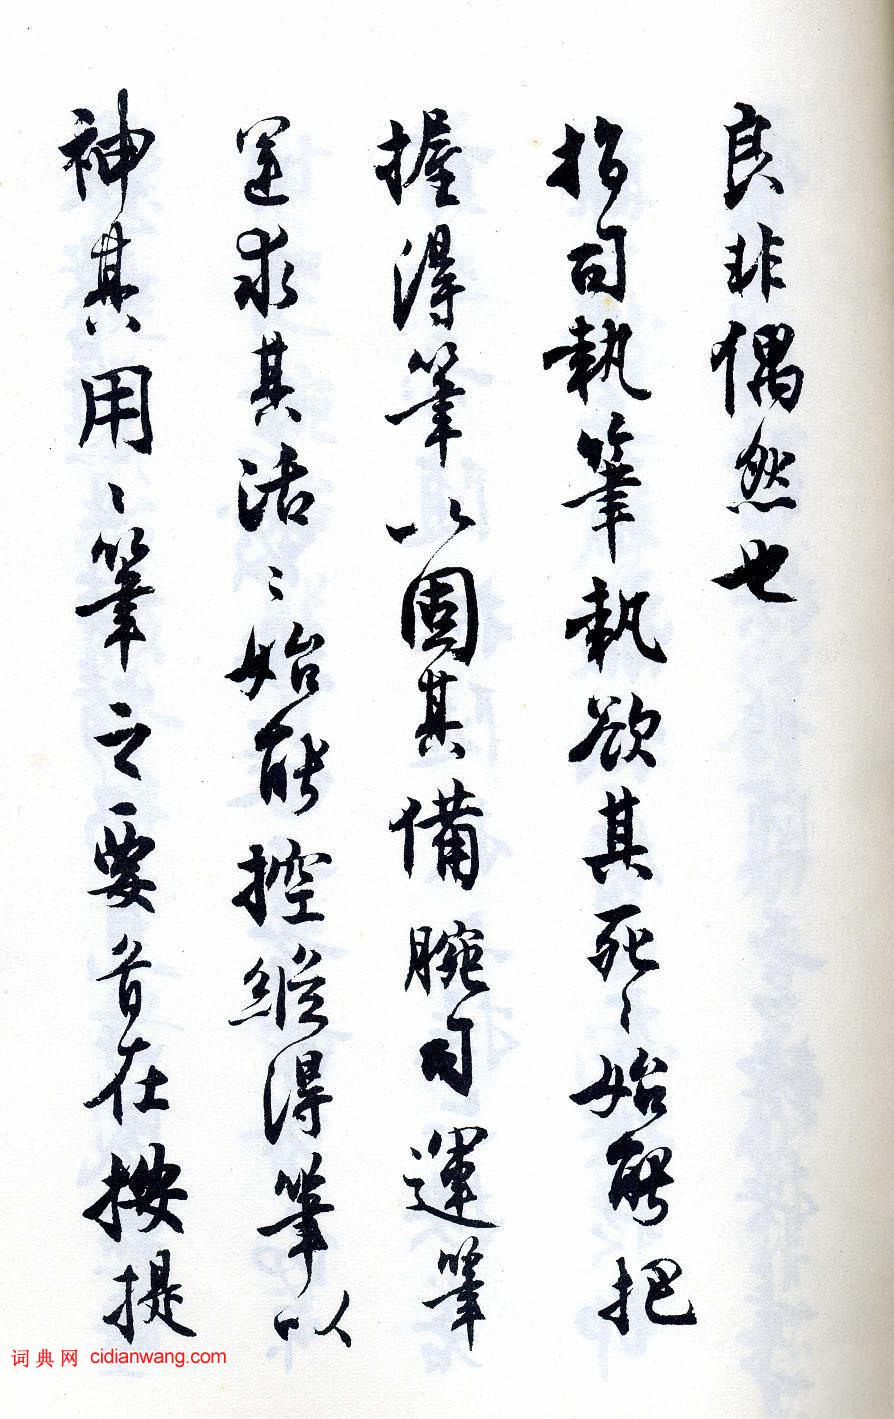 良非偶然也
指司執筆執欲其死〻始能把
握得筆以固其備腕司運筆
運求其活〻始能控縱得筆以
神其用〻筆之要首在按提
词典网 cidianwang.com